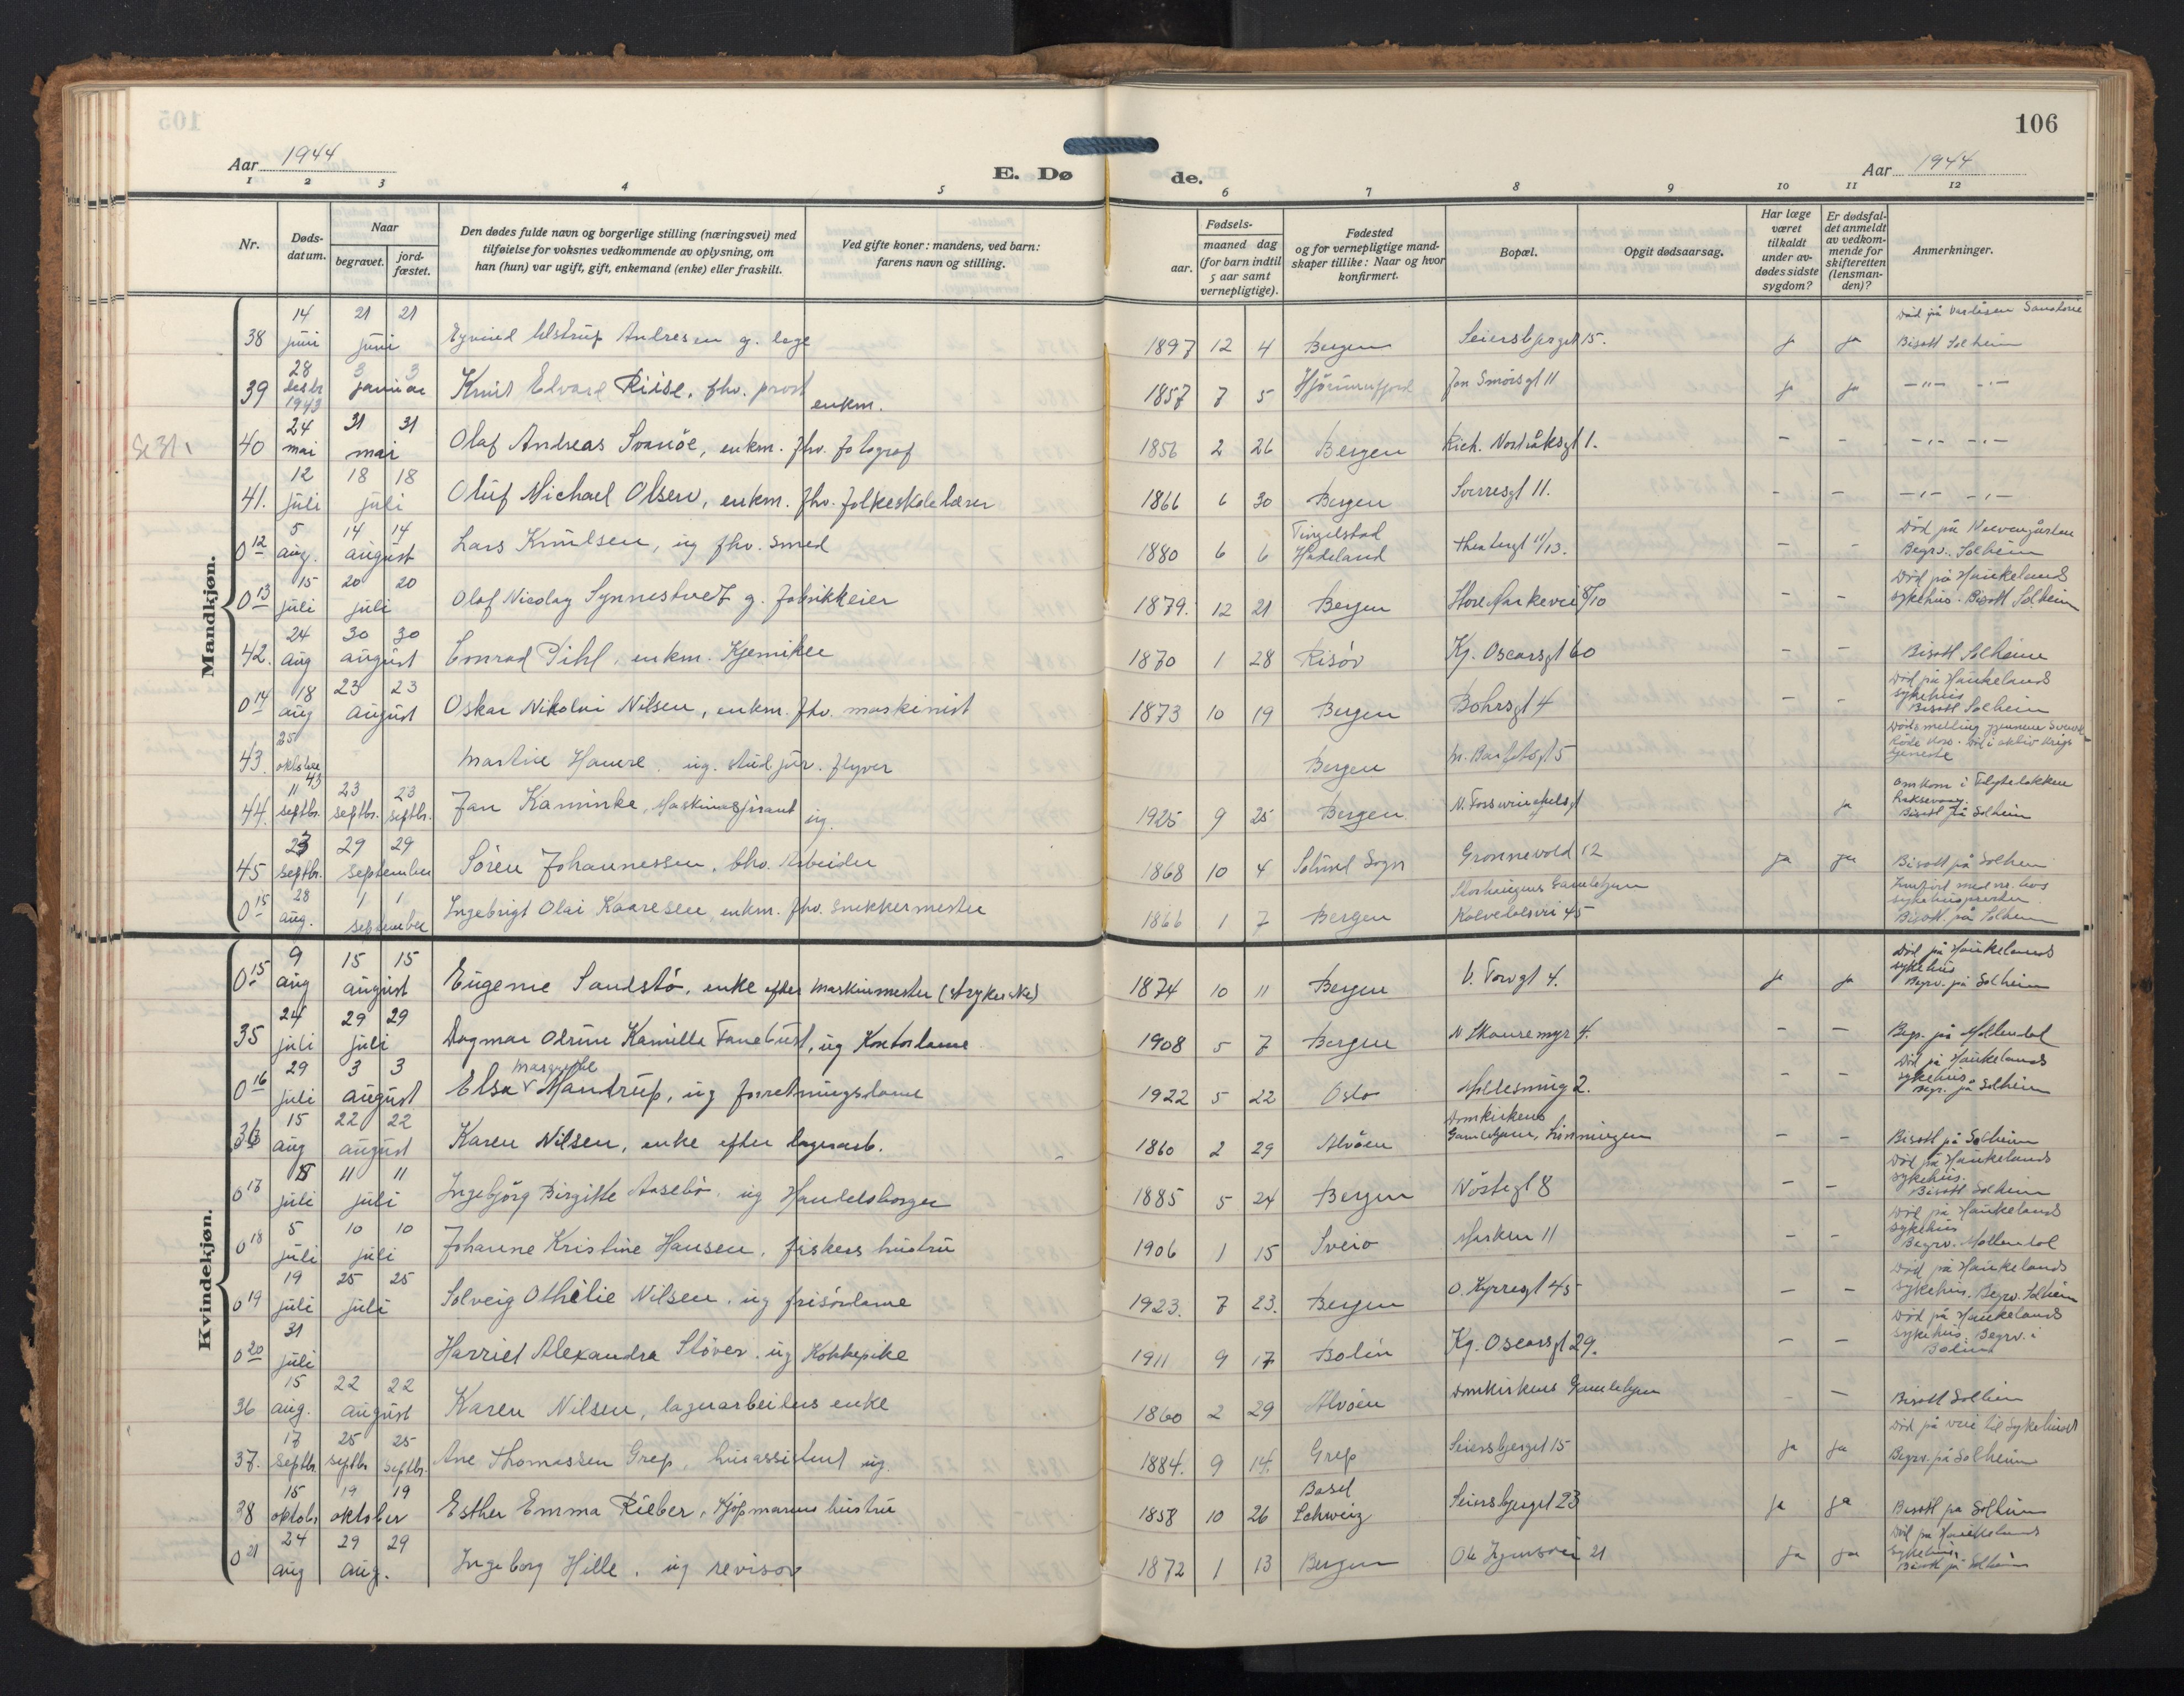 105
106
Aar 1944
E. Dø
de.
Aar 1944
1 2 3 4 5 6 7 8 9 10 11 12
Nr.
Døds-
datum.
Naar
begravet.
jord-
fæstet.
Den dødes fulde navn og borgerlige stilling (næringsvei) med
tilføielse for voksnes vedkommende av oplysning, om
han (hun) var ugift, gift, enkemand (enke) eller fraskilt.
Ved gifte koner: mandens, ved barn:
farens navn og stilling.
Fødsels-
aar.
maaned dag
(for barn indtil
5 aar samt
vernepligtige).
Fødested
og for vernepligtige mand-
skaper tillike: Naar og hvor
konfirmert.
Bopæl.
Opgit dødsaarsag.
Har læge
været
tilkaldt
under av-
dødes sidste
sygdom?
Er dødsfal-
det anmeldt
av vedkom-
mende for
skifteretten
(lensman-
den)?
Anmerkninger.
Mandkjøn.
38 14 juni 21 21 juni Eyvind Ulstrup Andresen g. lege 1897 12 4 Bergen Seiersbjerget 15. ja ja Død på Sanatorie Bisatt Solheim
39 28 desbr 1943 3 3 januar Knut Edvard Riise, fhv. prost enkm. 1857 7 5 Hjörundfjord Jon Smörsgt 11 ja ja -"- -"-
40 24 mai 31 31 mai Olaf Andreas Svanöe, enkm. fhv. fotograf 1856 2 26 Bergen Rich. Nordråksgt 1. - - -"- -"-
41. 12 juli 18 18 juli Oluf Michael Olsen, enkm. fhv. folkeskolelærer 1866 6 30 Bergen Sverresgt 11. - - -"- -"-
0 12 5 aug. 14 14 august Lars Knutsen, ug fhv. smed 1880 6 6 Tingelstad Hadeland Theatergt 11/13. - - Død på Neevengården Begrv. Solheim
0 13 15 juli 20 20 juli Olaf Nicolay Synnestvedt g. fabrikkeier 1879. 12 21 Bergen Store Markevei 8/10 - - Död på Haukelands sykehus. Bisatt Solheim
42. 24 aug 30 30 august Conrad Pihl, enkm. Kjemiker 1870 1 28 Risør Kg. Oscarsgt 60 - - Bisatt Solheim
0 14 18 aug 23 23 august Oskar Nikolai Nilsen, enkm. fhv. maskinist 1873 10 19 Bergen Bohrsgt 4 - - Död på Haukelands sykehus Bisatt Solheim
43. 25 oktober 43 Martin Hamre. ug. stud jur. flyver Bergen 5 Dødsmelding gjennem Svensk Röde Kors. Död i aktiv krigs tjeneste
44. 11 septbr. 23 septbr. 23 septbr. Jan Kaminke, Maskinaspirant ug. 1925 9 25 Bergen N. Fosswinckelsgt ja Omkom i Bisatt på Solheim
45 23 septbr. 29 29 september Sören Johannessen, fhv. Arbeider 1868 10 4 Solund Sogn Grønnevold 12 ja ja Bisatt på Solheim
0 15 28 aug. 1 1 september Ingebrigt Olai Kaaresen, enkm. fhv. snekkermester 1866 1 7 Bergen Storhaugens Gamlehjem Kalvedalsvei 45 Innført med nr. hos sykehuspresten Bisatt på Solheim
Kvindekjøn.
0 15 9 aug 15 15 august Eugenie Sandstö, enke efter maskinmester (strykerske) 1874 10 11 Bergen V. Torvgt 4. ja ja Död på Haukelands sykehus Begrv. på Solheim
35 24 juli 29 29 juli Dagmar Olrine Kamille Tanebust, ug Kontordame 1908 5 7 Bergen N Skansemyr 4. - - Begr. på Møllendal
0 16 29 juli 3 3 august Elsa Margrethe Mandrup, ug forretningsdame 1922 5 22 Oslo 2. - - Död på Haukelands sykehus Begr. på Solheim
36 15 aug 22 22 august Karen Nilsen, enke efter lagerarb. 1860 2 29 Alvöen Domkirkens Gamlehjem, - - Bisatt på Solheim
0 17 5 juli 11 11 juli Ingebjörg Birgitte Aasebö, ug Handelsborger 1885 5 24 Bergen Nöstegt 8 - - Død på Haukelands sykehus. Bisatt Solheim
0 18 5 juli 10 10 juli Johanne Kristine Hansen, fiskers hustru 1906 1 15 Sveio Marken 11 - - Död på Haukelands sykehus Begrv. Møllendal
0 19 19 juli 25 25 juli Solveig Othelie Nilsen, ug frisördame 1923. 7 23. Bergen O. Kyrresgt 45 - - Död på Haukelands sykehus. Begrv. Solheim
0 20 31 juli Harriet Alexandra Stöver. ug Kokkepike 1911 9 17 Bolin Kg. Oscarsgt 29. - - Död på Haukelands sykehus. Begrv. i
36 15 aug. 22 22 august Karen Nilsen, lagerarbeiders enke 1860 2 29 Alvöen Domkirkens Gamlehjem - - Bisatt Solheim
37. 17 septbr. 25 septbr 25 septbr. Ane Thomassen Grep, husassistent ug. 1884. 9 14. Grep Seiersbjerget 15 ja ja Död på vei til Sykehuset Begrv. på Solheim
38 15 oktobr 19 19 oktober Esther Emma Rieber, Kjøpmanns hustru 1858 10 26 Basel Schweiz Seiersbjerget 23 ja ja Bisatt på Solheim
0 21 24 aug 29 29 aug. Ingeborg Hille, ug revisor 1872 1 13 Bergen 21 ja ja Död på Haukelands sykehus Bisatt på Solheim